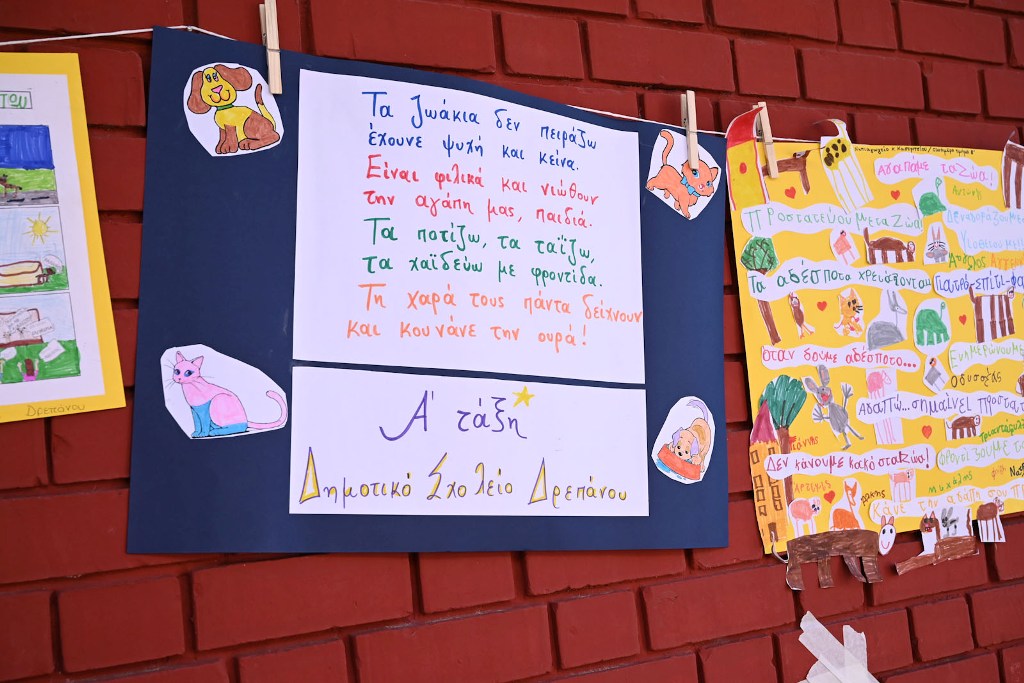 Τα ζωάκια δεν πειράζω
έχουνε ψυχή και κείνα.
Είναι φιλικά και νιώθουν
την αγάπη μας, παιδιά.
Τα ποτίζω, τα ταΐζω,
τα χαϊδεύω με φροντίδα.
Τη χαρά τους πάντα δείχνουν
και κουνάνε την ουρά!
Α' τάξη
Δημοτικό Σχολείο Δρεπάνου
Δρεπάνου
Αγαπάμε τα Ζώα!
Προστατεύουμε τα Ζώα!
Τα αδέσποτα χρειάζονται
Γιατρό-σπίτι-φα
Όταν δούμε αδέσποτο...
Ενημερώνουμε
Οδυσσέας
Αγαπώ...σημαίνει προστατ
Δεν κάνουμε κακό στα ζώα!
Φροντίζουμε τα
Μιχάλης
Κάνε την αγάπη σου π